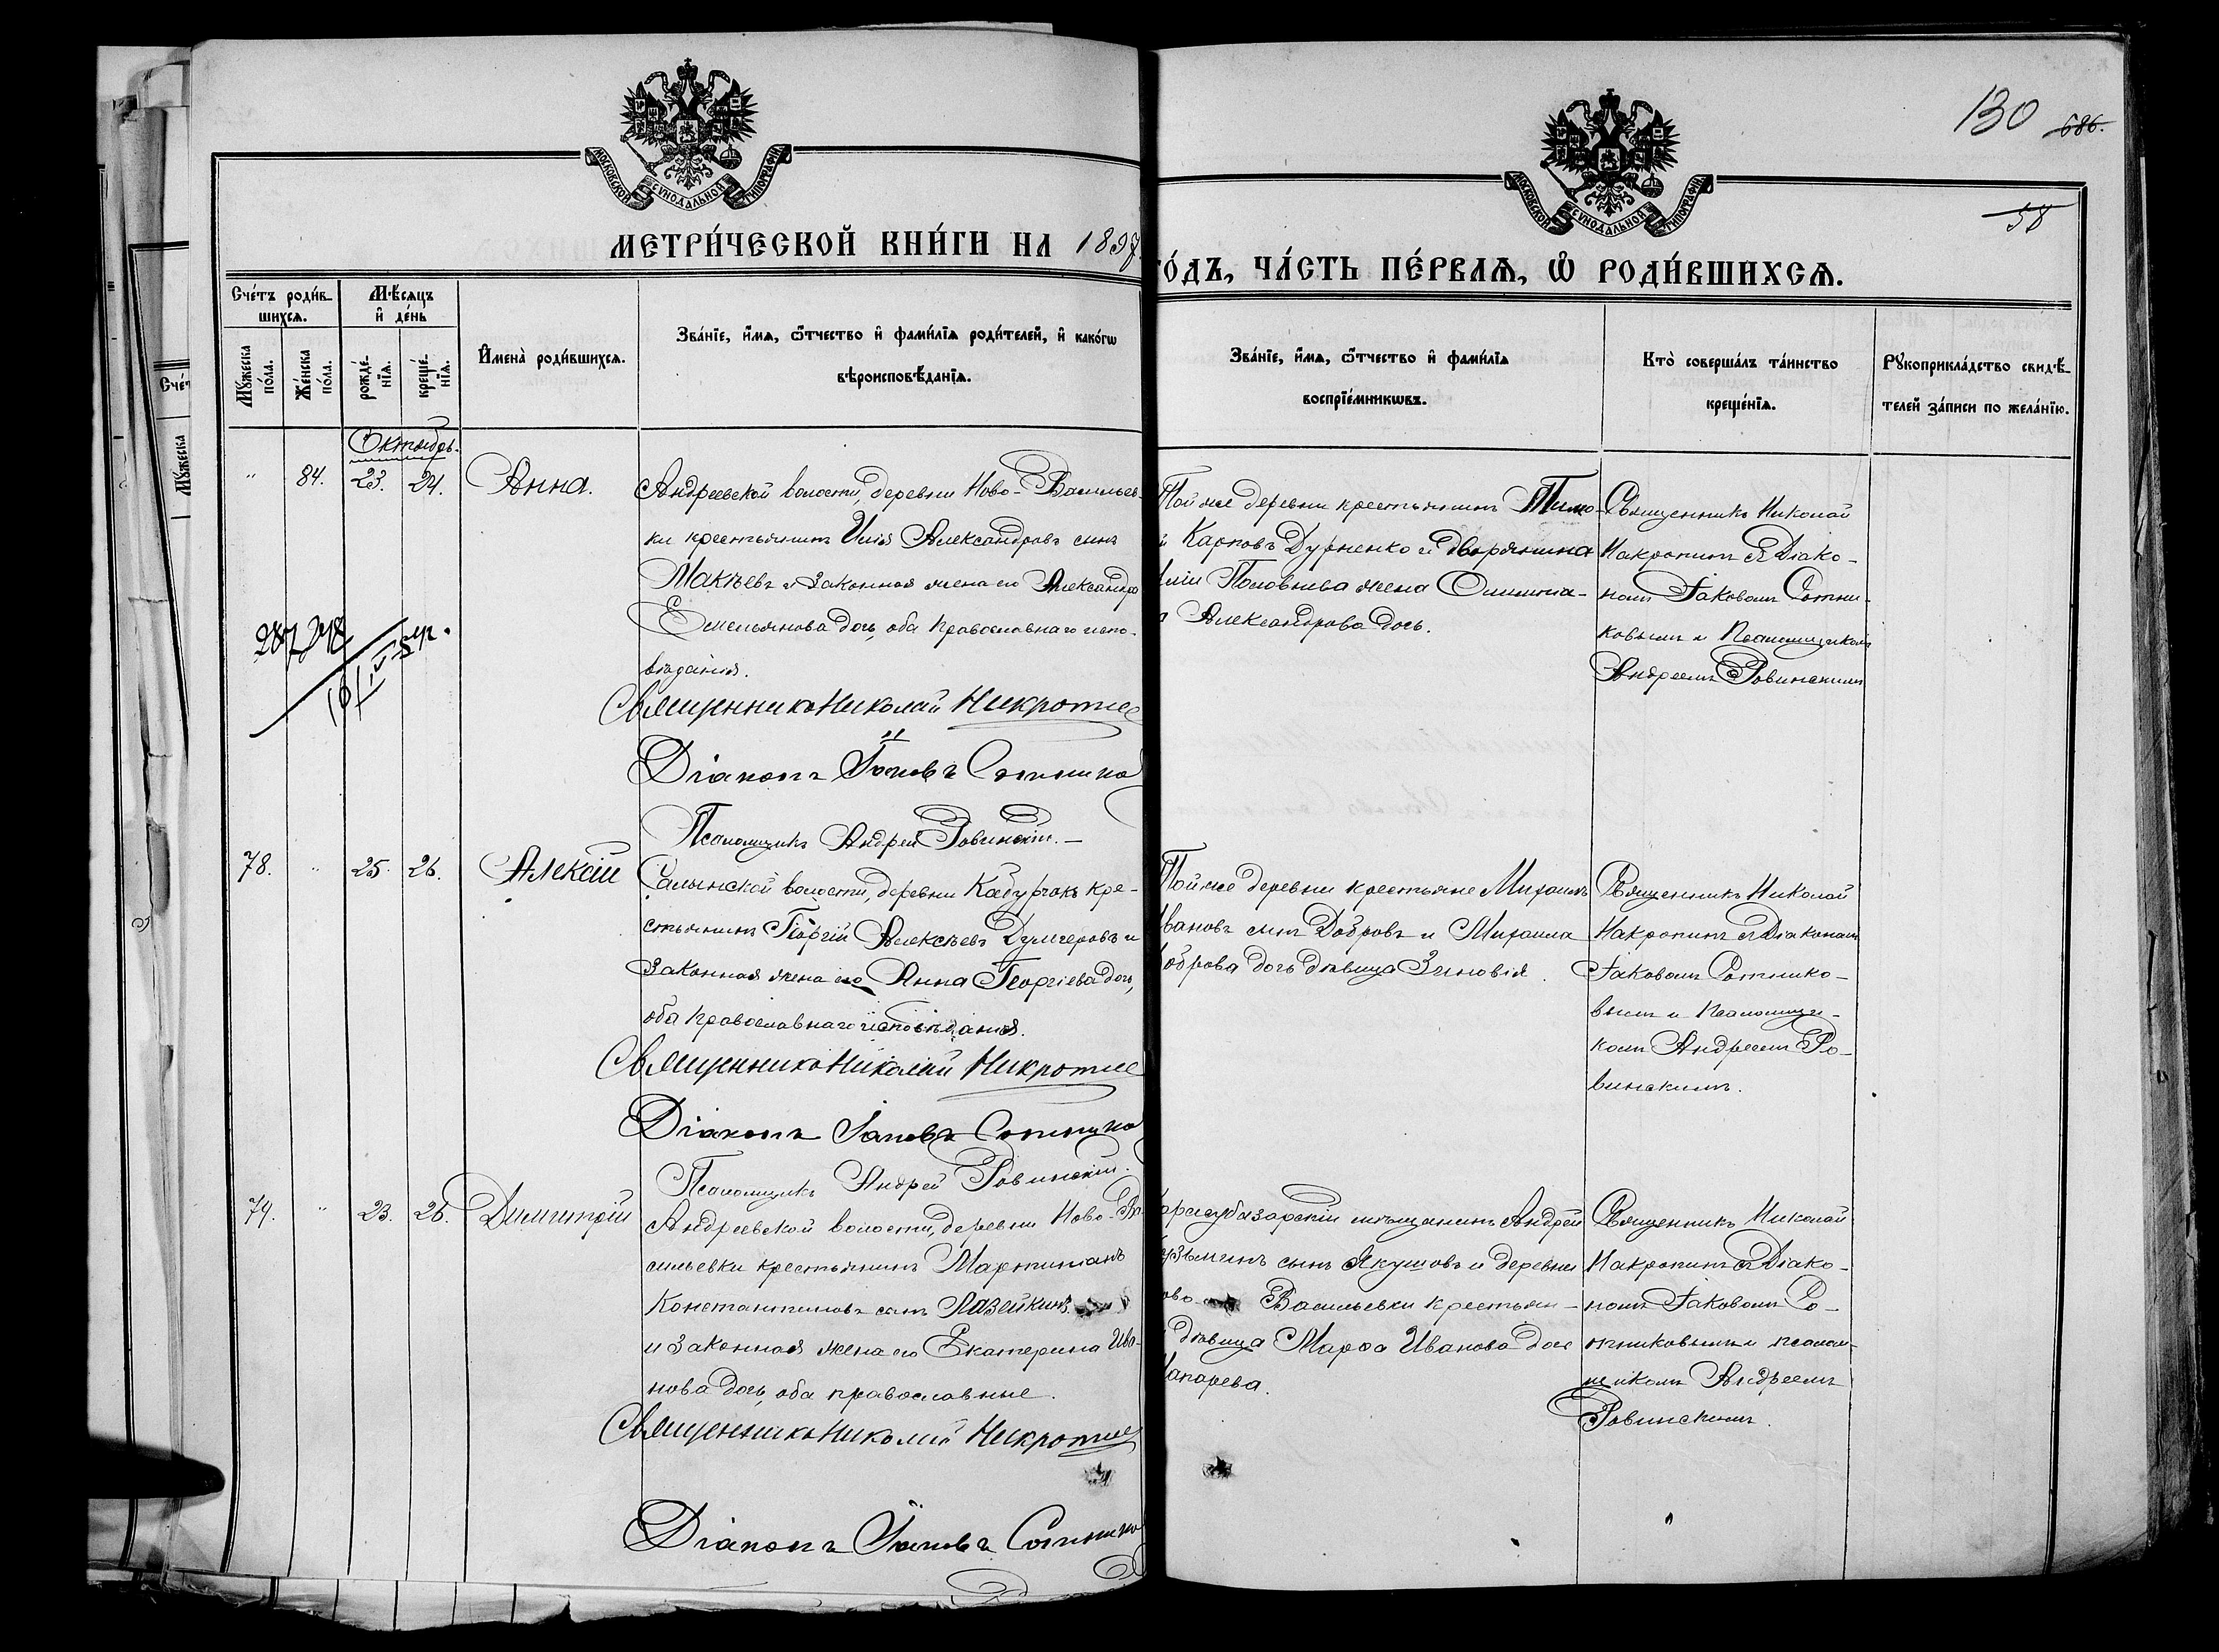 130 686.
58
МОСКОВСКОЙ СУНОДАЛЬНОЙ ТИПОГРАФІИ
МОСКОВСКОЙ СУНОДАЛЬНОЙ ТИПОГРАФІИ
МЕТРИ́ЧЕСКОЙ КНИ́ГИ НА 1897
ГО́ДЪ, ЧА́СТЬ ПЕ́РВАЯ, Ѡ РОДИ́ВШИХСЯ.
Сче́тъ роди́в-
шихся.
Мѣ́сяцъ
и де́нь
Мꙋжеска
по́ла.
Же́нска
по́ла.
рожде́-
нїя.
креще́-
нїя.
Имена̀ роди́вшихся.
Зва́нїе, и́мя, ѻ́тчество и фами́лїя роди́телей, и како́гѡ
вѣроисповѣ́данїя.
Зва́нїе, и́мя, ѻ́тчество и фами́лїя
воспрїе́мникѡвъ.
Кто̀ соверша́лъ та́инство
креще́нїя.
Рꙋкоприкла́дство свидѣ́-
телей за́писи по жела́нїю.
Октябрь.
" 84. 23. 24. Анна.
Андреевской волости, деревни Ново-Васильев-
ки крестьянинъ Илія Александровъ сынъ
Макѣевъ и законная жена его Александра
Емельянова дочь, оба православнаго испо-
вѣданія.
Священникъ Николай
Діаконъ Іаковъ Сотнико
Псаломщикъ Андрей Ровинскій.
Той же деревни крестьянинъ Тимо-
Карповъ Дурненко и дворянина
жена
Александрова дочь.
Священникъ Николай
Накропинъ съ Діако-
номъ Іаковомъ Сотни-
ковымъ и Псаломщикомъ
Андреемъ Ровинскимъ
78. " 25. 26. Алексій
волости, деревни кре-
стьянинъ Георгій Алексѣевъ и
законная жена его Анна Георгіева дочь,
оба православнаго исповѣданія.
Священникъ Николай
Діаконъ Іаковъ Сотнико
Псаломщикъ Андрей Ровинскій.
Той же деревни крестьяне Михаилъ
Ивановъ сынъ Добровъ и Михаила
Доброва дочь дѣвица Зиновія.
Священникъ Николай
Накропинъ съ Діакономъ
Іаковомъ Сотнико-
вымъ и Псаломщи-
комъ Андреемъ Ро-
винскимъ.
79. " 23. 26. Димитрій
Андреевской волости, деревни Ново-Ва-
сильевки крестьянинъ Мартиніанъ
Константиновъ сынъ Лазейкинъ
и законная жена его Екатерина Ива-
нова дочь, оба православные.
Священникъ Николай
Діаконъ Іаковъ Сотнико
Карасубазарскій мѣщанинъ Андрей
Кузьминъ сынъ Якушовъ и деревни
Ново Васильевки крестьян-
дѣвица Марѳа Иванова дочь
Священникъ Николай
Накропинъ съ Діако-
номъ Іаковомъ Со-
тниковымъ и псалом-
щикомъ Андреемъ
Ровинскимъ.